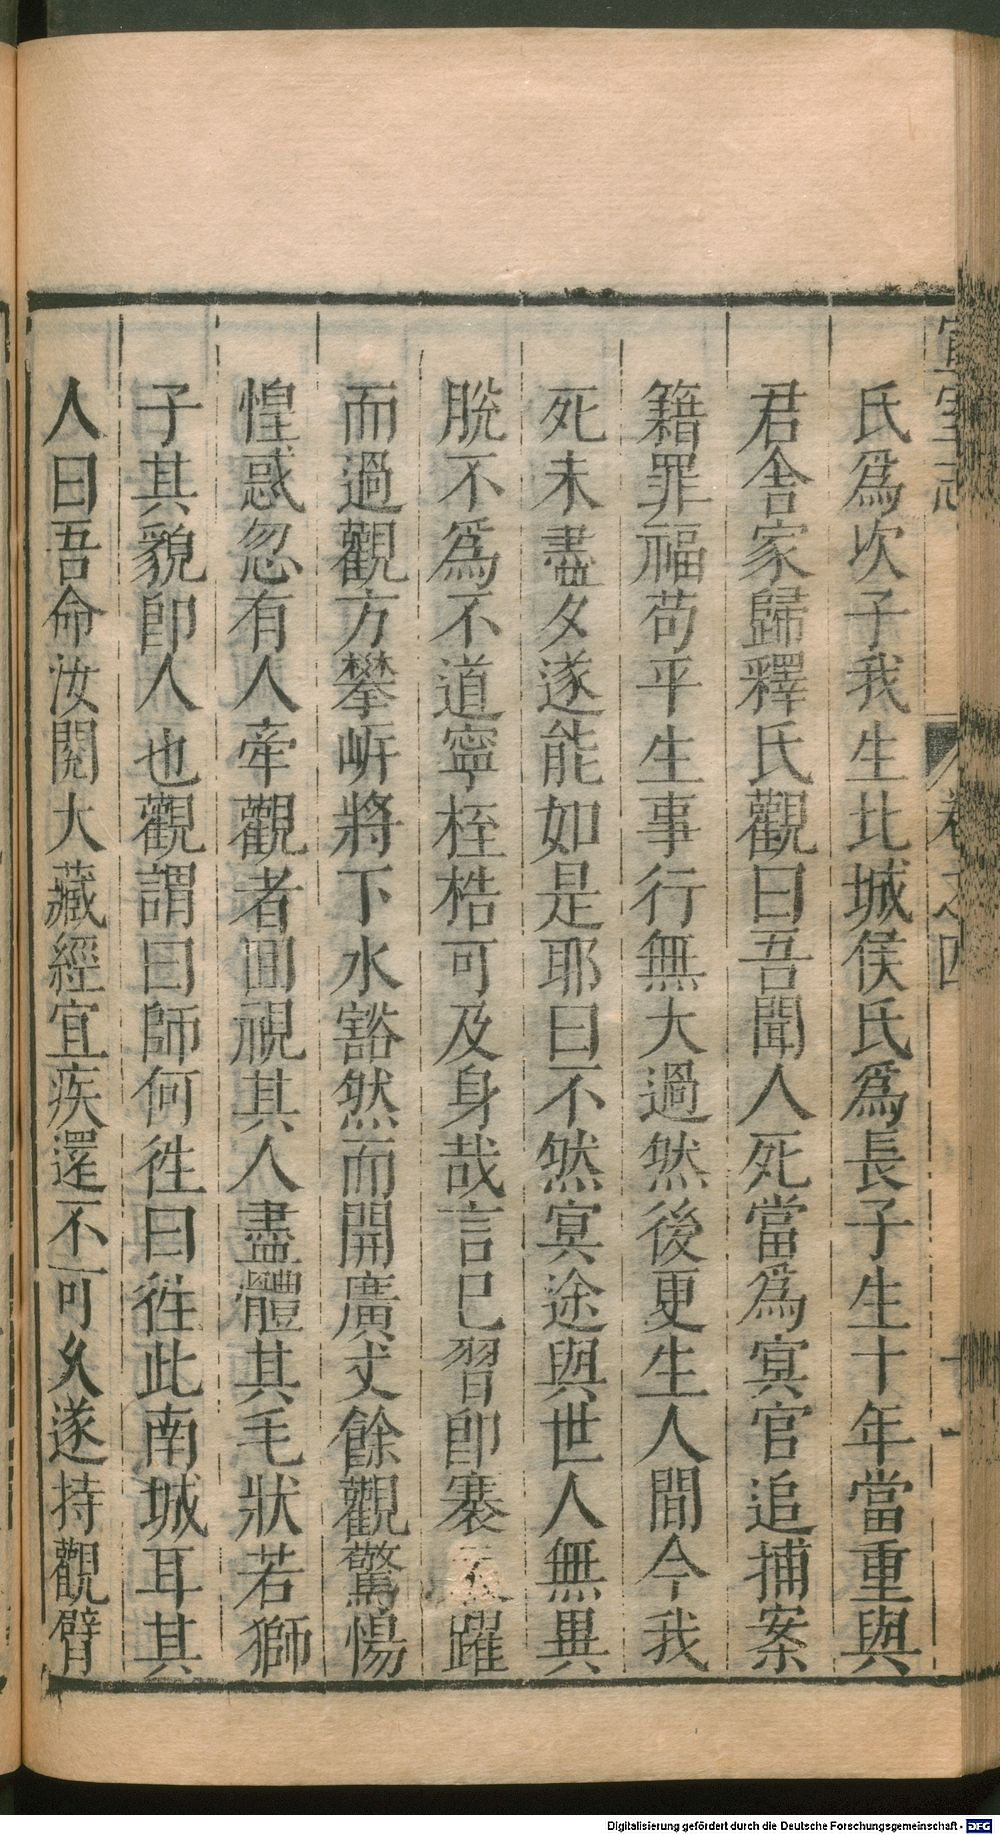 宣室志 卷之四 十一
氏爲次子我生北城侯氏爲長子生十年當重與
君舍家歸釋氏觀曰吾聞人死當爲冥官追捕案
籍罪福苟平生事行無大過然後更生人間今我
死未盡夕遂能如是耶曰不然冥途與世人無異
脫不爲不道寧桎梏可及身哉言已習即褰躍
而過觀方攀岸將下水豁然而開廣丈餘觀驚惕
惶惑忽有人牽觀者囬視其人盡體其毛狀若獅
子其貌即人也觀謂曰師何徃曰徃此南城耳其
人曰吾命汝閱大藏經宜疾還不可久遂持觀臂
Digitalisierung gefördert durch die Deutsche Forschungsgemeinschaft - DFG